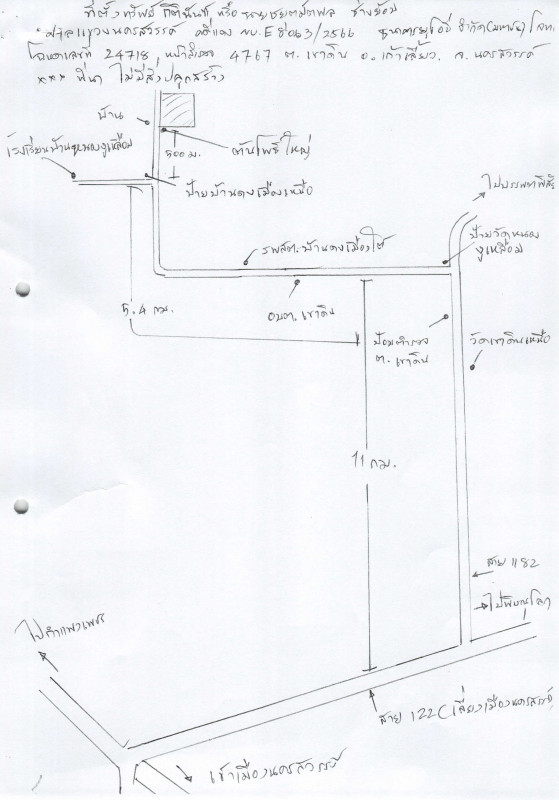 ที่ตั้งทรัพย์ กิตินันท์ หรือ
ศาลแขวงนครสวรรค์ คดีแดง ผบ.E 2063/2566 ธนาคารยูโอบี จำกัด(มหาชน) โจทก์
โฉนดเลขที่ 24718, หน้าสำรวจ 4767 ต. เขาดิน อ. เก้าเลี้ยว. จ. นครสวรรค์
*** ที่นา ไม่มีสิ่งปลูกสร้าง
บ้าน
500 ม.
ต้นโพธิ์ใหญ่
โรงเรียนบ้านหนองงูเหลือม
ป้ายบ้านดงเมืองเหนือ
ไปบรรพตพิสัย
รพสต. บ้านดงเมืองใต้
ป้ายวัดหนอง
งูเหลือม
5.4 กม.
อบต. เขาดิน
ป้อมตำรวจ
ต. เขาดิน
วัดเขาดินเหนือ
11 กม.
สาย 1182
ไปพิษณุโลก
ไปกำแพงเพชร
สาย 122 (เลี่ยงเมืองนครสวรรค์)
เข้าเมืองนครสวรรค์